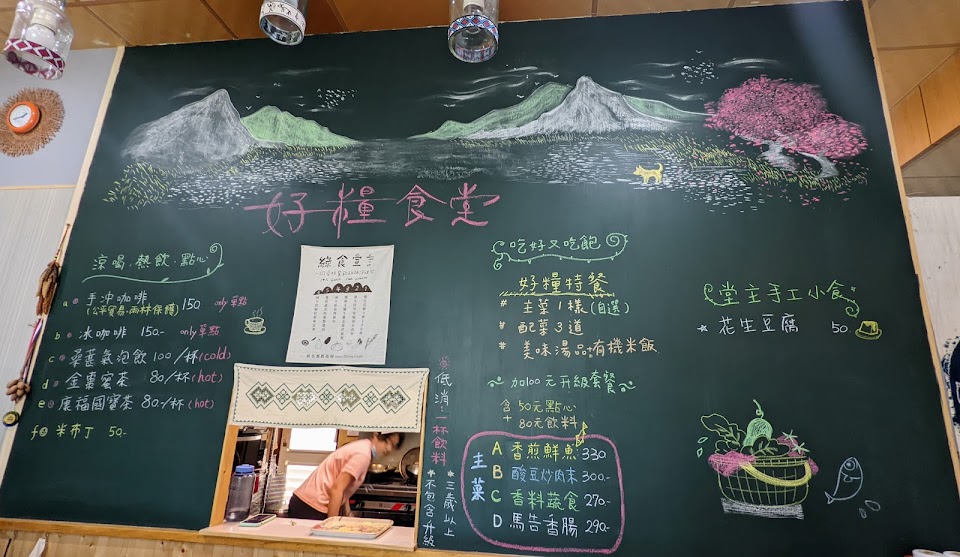 好糧食堂
涼喝.熱飲.點心
a 手沖咖啡 150 only單點
(公平貿易.雨林保護)
b 冰咖啡 150- only單點
c 氣泡飲 100/杯(cold)
d 金棗蜜茶 80/杯(hot)
e 康福國寶茶 80-/杯(hot)
f 米布丁 50-
綠食宣言
※低消:一杯飲料
*三歲以上
*不包含升級
吃好又吃飽
好糧特餐
# 主菜1樣(自選)
# 配菜3道
# 美味湯品+有機米飯
加100元升級套餐
含50元點心
+
80元飲料
主菜
A 香煎鮮魚 330
B 酸豆炒肉末 300-
C 香料蔬食 270-
D 馬告香腸 290-
堂主手工小食
★ 花生豆腐 50